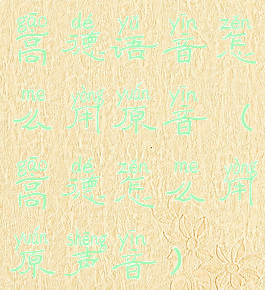 gāo dé yǔ yīn zěn
高德语音怎
me yòng yuán yīn
么用原音（
gāo dé zěn me yòng
高德怎么用
yuán shēng yīn
原声音）